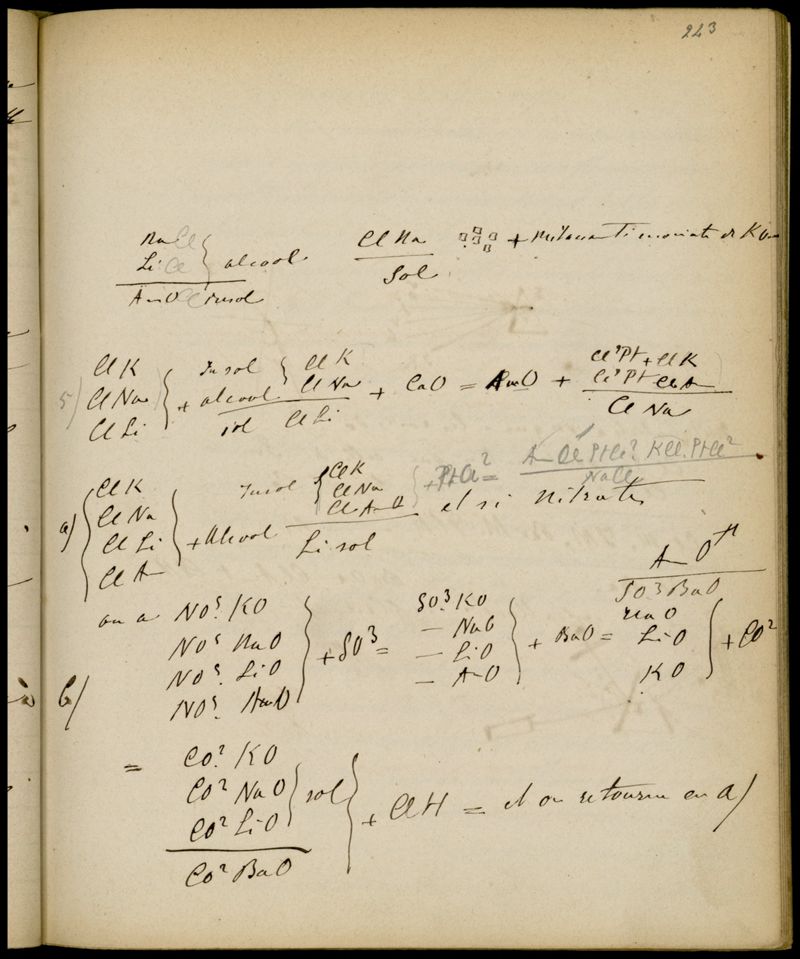 223
NaCl
LiCl } alcool
AmO Cl insol
ClNa
Sol
+ de KO
5) ClK
ClNa
ClLi } + alcool
Insol { ClK
ClNa
sol ClLi
+ CaO = AmO +
Cl²Pt + ClK
Cl²Pt ClAm
ClNa
a) { ClK
ClNa
ClLi
ClAm } + Alcool
Insol { ClK
ClNa
ClAm
Li sol
+ PtCl² =
AmCl PtCl². KCl. PtCl²
NaCl
et si nitrates
on a
b) NO⁵. KO
NO⁵ NaO
NO⁵. LiO
NO⁵. AmO } + SO³ =
SO³. KO
— NaO
— LiO
— AmO } + BaO =
AmO
SO³BaO
NaO
LiO
KO } + CO²
= CO². KO
CO² NaO
CO² LiO } sol
CO² BaO } + ClH = et on retourne en a)